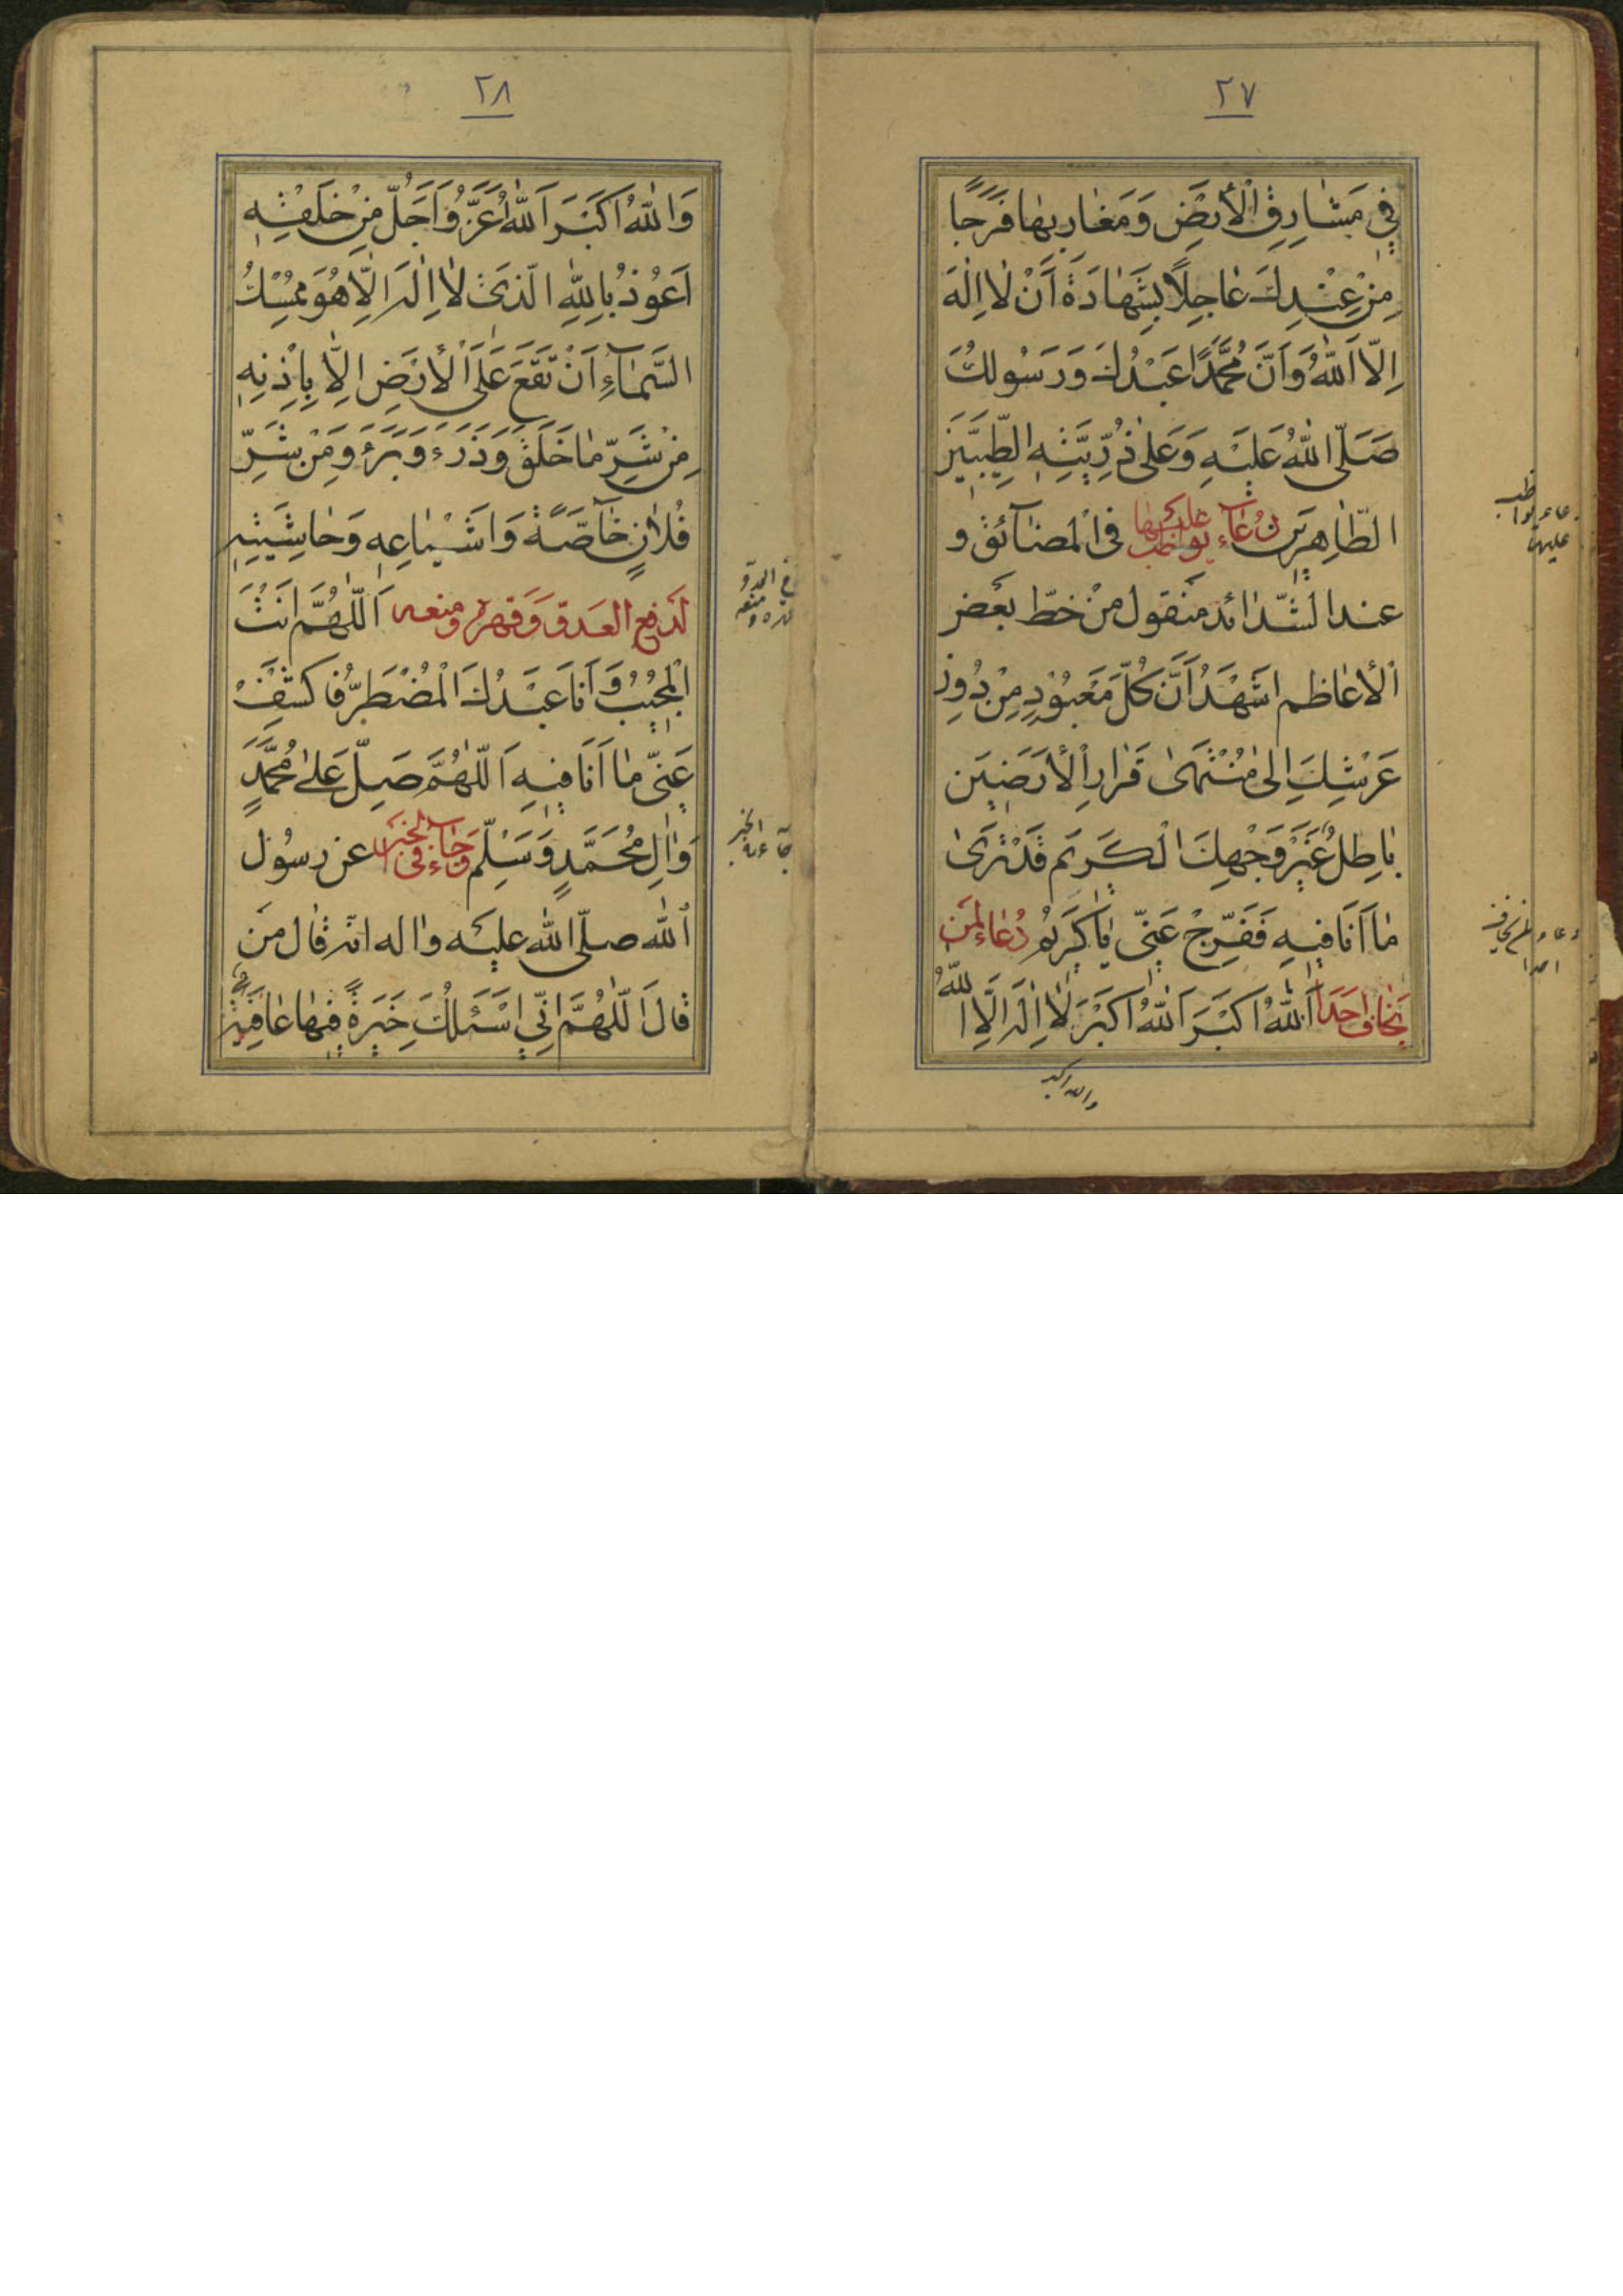 ٢٧
في مَشٰارِقِ الْأَرْضِ وَمَغٰارِبِهٰا فَرَجًا
مِنْ عِنْدِكَ عٰاجِلًا بِشَهٰادَةِ أَنْ لٰا اِلٰهَ
اِلَّا اللّٰهُ وَاَنَّ مُحَمَّدًا عَبْدُكَ وَرَسُولُكَ
صَلَّى اللّٰهُ عَلَيْهِ وَعَلىٰ ذُرِّيَّتِهِ الطَّيِّبِيْنَ
الطّٰاهِرِيْنَ دُعٰاء يواظب عليها فى الْمضٰائق و
عند الشّدٰائد منقول من خطّ بعض
الأعٰاظم اَشْهَدُ اَنَّ كُلَّ مَعْبُوْدٍ مِنْ دُوْنِ
عَرْشِكَ اِلىٰ مُنْتَهىٰ قَرٰارِ الْأَرَضِيْنَ
بٰاطِلٌ غَيْرَ وَجْهِكَ الْكَرِيْمِ قَدْ تَرىٰ
مٰا اَنَا فِيْهِ فَفَرِّجْ عَنّى يٰا كَرِيْمُ دُعٰاء لمن
يخاف احدا اَللّٰهُ اَكْبَرُ اَللّٰهُ اَكْبَرُ لٰا اِلٰهَ اِلَّا اللّٰهُ
والله اكبر
دعاء يواظب
عليها
دعاء لمن يخاف
احدا
٢٨
وَاللّٰهُ اَكْبَرُ اَللّٰهُ اَعَزُّ وَاَجَلُّ مِنْ خَلْقِهِ
اَعُوْذُ بِاللّٰهِ الَّذى لٰا اِلٰهَ اِلَّا هُوَ مُمْسِكُ
السَّمٰاءِ اَنْ تَقَعَ عَلَى الْأَرْضِ اِلَّا بِاِذْنِهِ
مِنْ شَرِّ مٰا خَلَقَ وَذَرَءَ وَبَرَءَ وَمِنْ شَرِّ
فُلٰانٍ خٰاصَّةً وَاَشْيٰاعِهِ وَحٰاشِيَتِهِ
لدفع العدوّ وقهره ومنعه اَللّٰهُمَّ اَنْتَ
الْمُجِيْبُ وَاَنَا عَبْدُكَ الْمُضْطَرُّ فَاكْشِفْ
عَنّى مٰا اَنَا فِيْهِ اَللّٰهُمَّ صَلِّ عَلىٰ مُحَمَّدٍ
وَاٰلِ مُحَمَّدٍ وَسَلِّمْ وجٰاء فى الخبر عن رسُول
اللّٰه صلّى اللّٰه عليه واله انّه قٰال من
قٰالَ اَللّٰهُمَّ اِنّي اَسْئَلُكَ خِيَرَةً فِيْهٰا عٰافِيَةٌ
دفع العدوّ
قهره و منعه
جاء فى الخبر